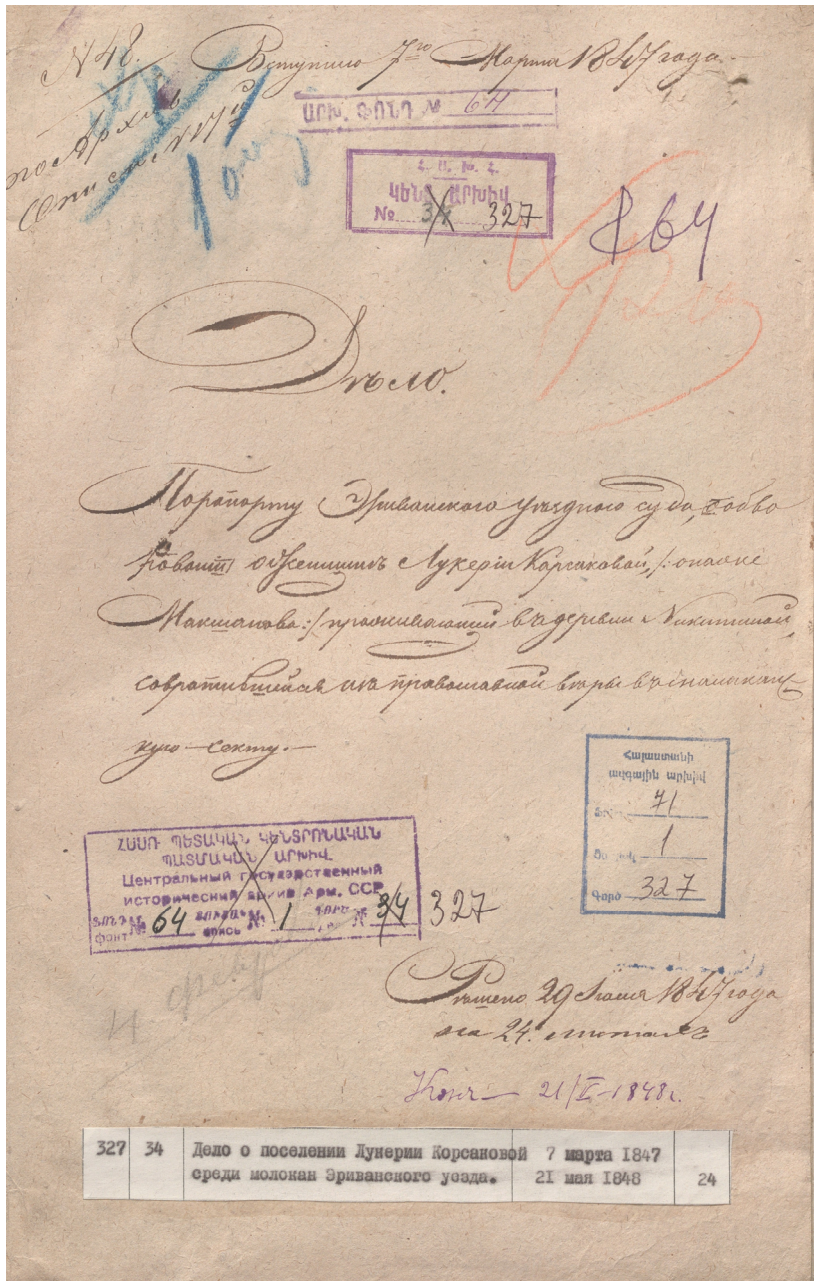 N 48. Вступило 7го Марта 1847 года
по Архив
Описи N 17й
ԱՐԽ. ՖՈՆԴ № 64
Հ. Ս. Խ. Հ.
ԿԵՆՏ ԱՐԽԻՎ
№ 34 327
64
Дѣло.
По рапорту Эриванского уѣзднаго суда, с
о женщинѣ Лукеріи Карсаковой, /: она же
Макшанова :/ проживающей въ деревни Никитиной,
совратившейся изъ православной вѣры въ
кую секту.
Հայաստանի
ազգային արխիվ
Ֆոնդ 71
Ցուցակ 1
Գործ 327
ՀՍՍՌ ՊԵՏԱԿԱՆ ԿԵՆՏՐՈՆԱԿԱՆ
ՊԱՏՄԱԿԱՆ ԱՐԽԻՎ
Центральный государственный
исторический архив Арм. ССР
ՖՈՆԴ № 64 ՑՈՒՑԱԿ № 1 ԳՈՐԾ № 34 327
фонд опись
Рѣшено 29 1847 года
на 24. листахъ
21/V 1848 г.
327 34 Дело о поселении Лунерии Корсановой 7 марта 1847
среди молокан Эриванского уезда. 21 мая 1848 24